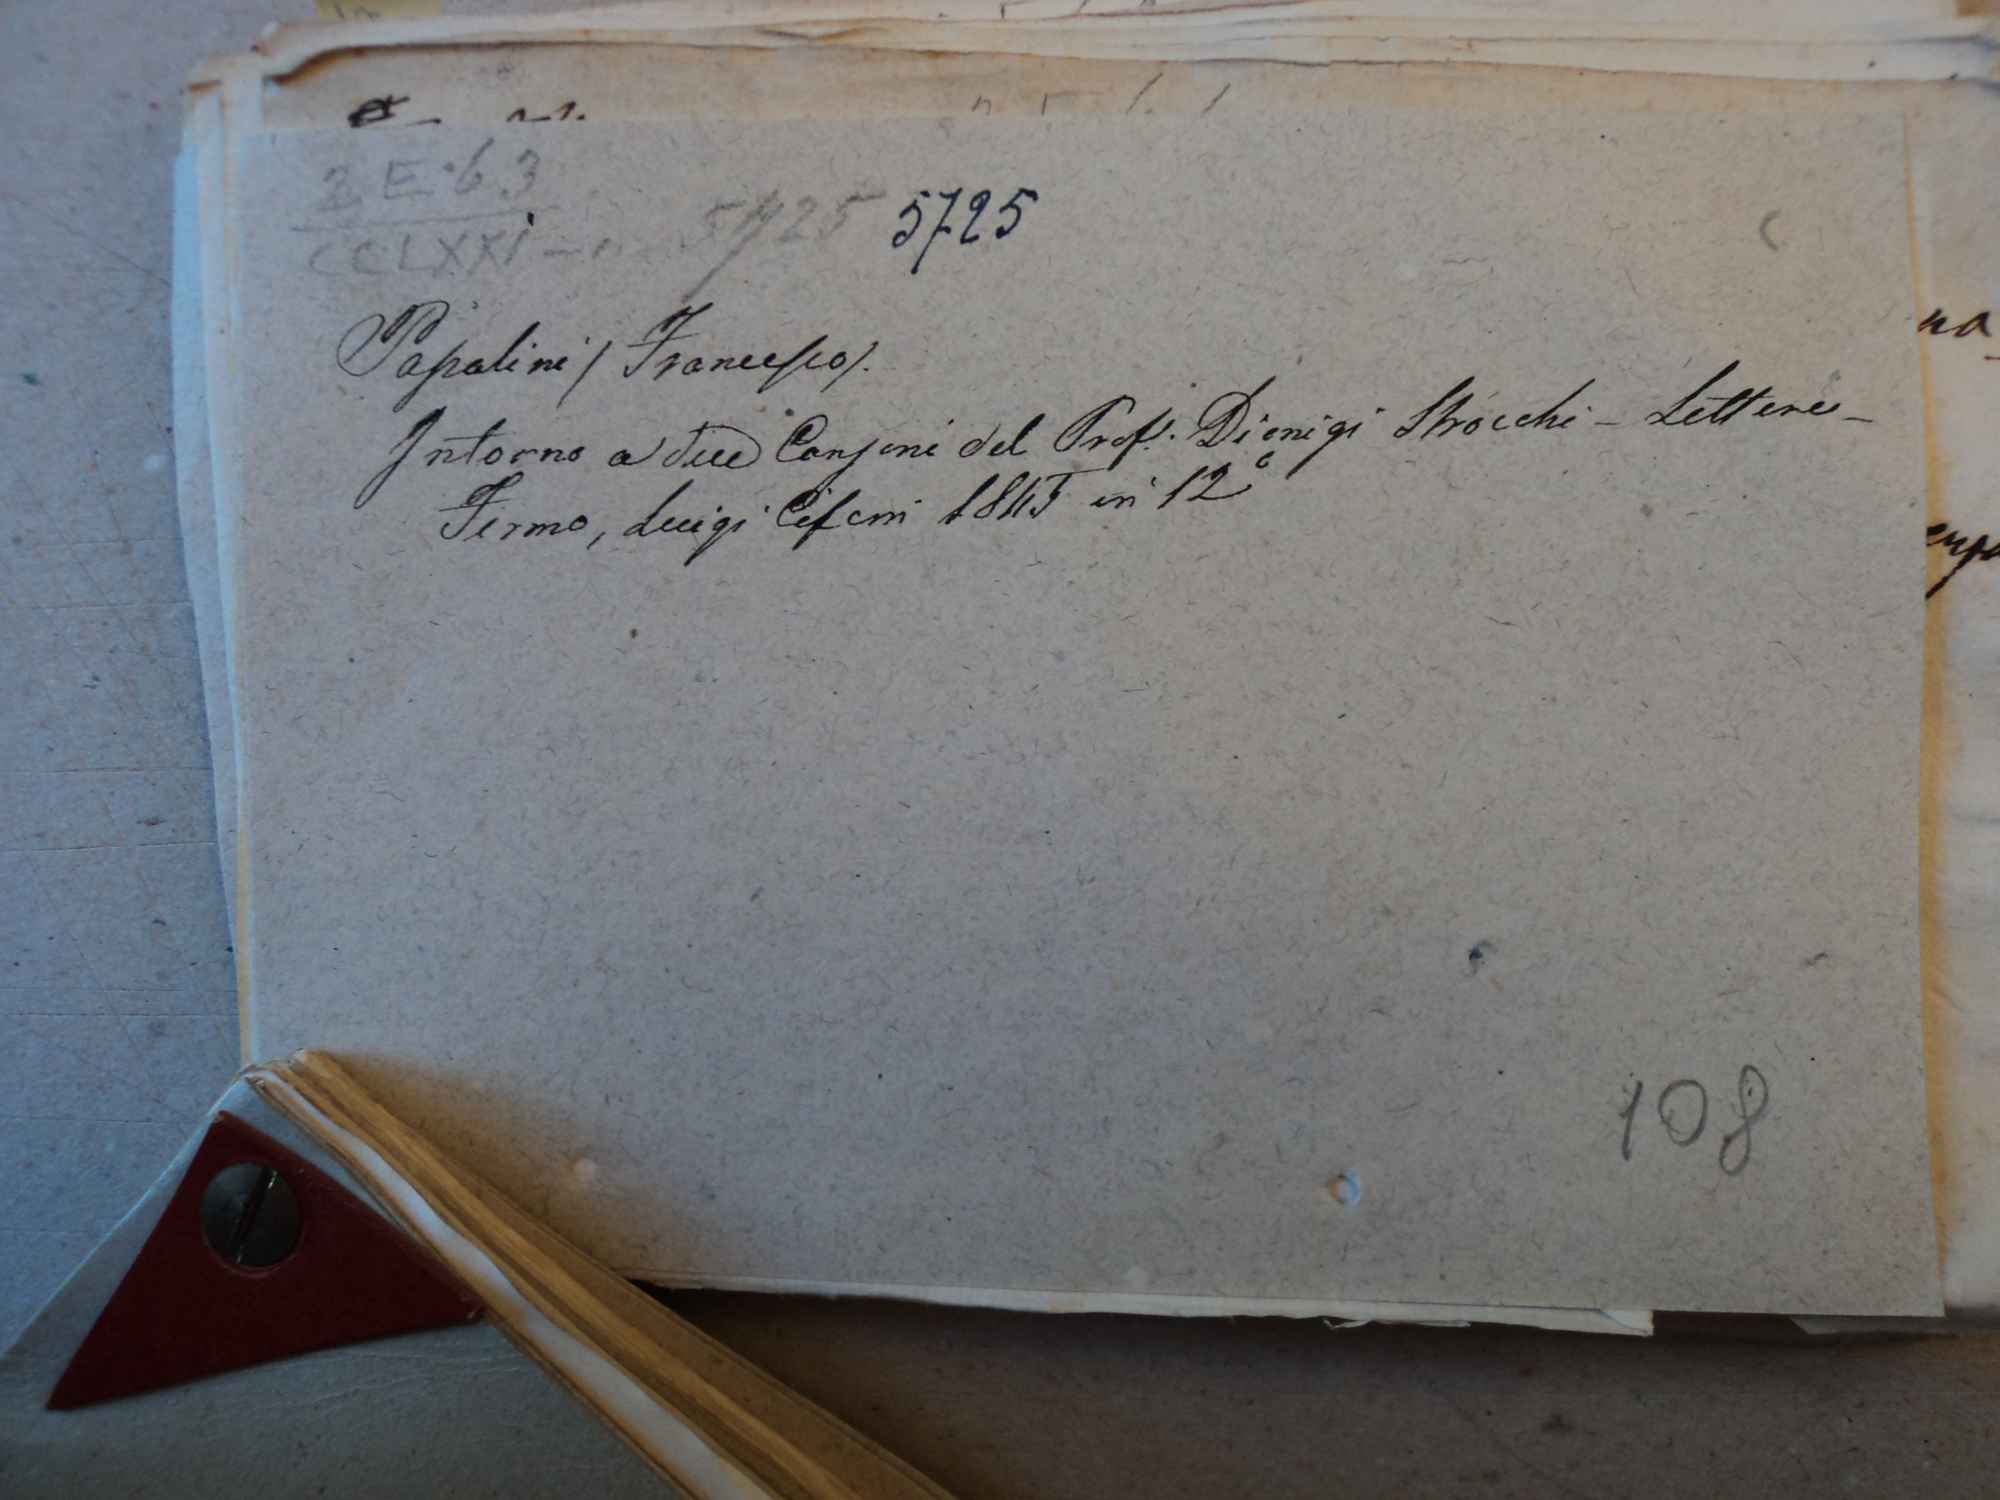 2 E·63
CCLXXI - 5725 5725
Papalini (Francesco).
Intorno a due Canzoni del Prof. Dionigi Strocchi - Lettere -
Fermo, Luigi Cifoni 1845 in 12°
108